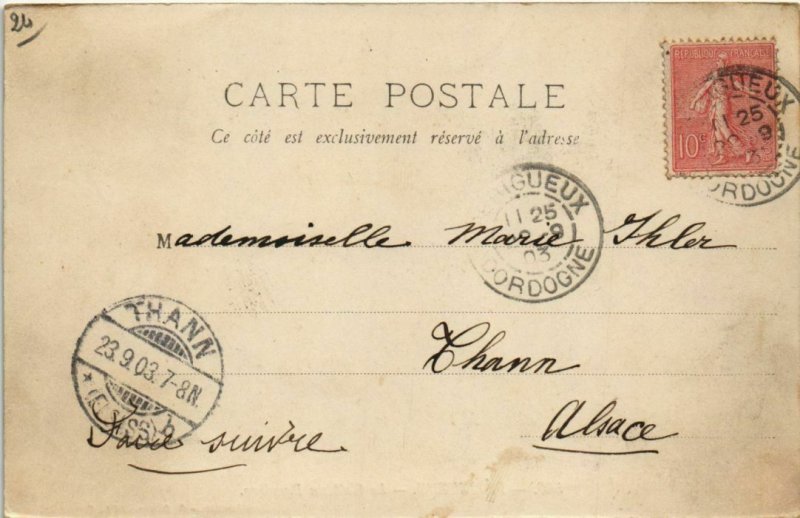 24
REPUBLIQUE FRANÇAISE
10c
CARTE POSTALE
Ce côté est exclusivement réservé à l'adresse
GUEUX
11 25
9
ORDOGNE
IGUEUX
11 25
9
03
DORDOGNE
Mademoiselle Marie Ihler
Thann
Alsace
THANN
23.9.03.7-8N.
* (ELSASS) b
Faire suivre.